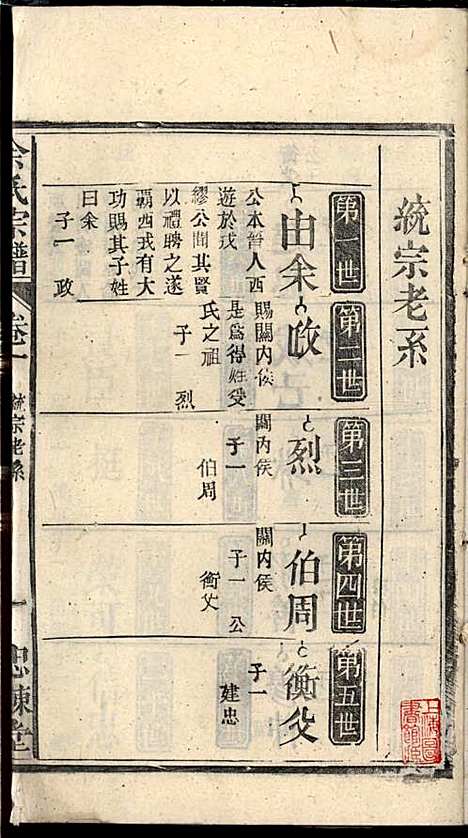 統宗老系
第一世
由余
公本晉人西
遊於戎
繆公聞其賢
以禮聘之遂
霸西戎有大
功賜其子姓
曰余
子一 政
第二世
政
賜關內侯
是爲得姓受
氏之祖
子一 烈
第三世
烈
關內侯
子一
伯周
第四世
伯周
關內侯
子一 公
衡父
第五世
衡父
子一
建忠
余氏宗譜
卷一
統宗老系
一
忠諫堂
上海圖書館藏